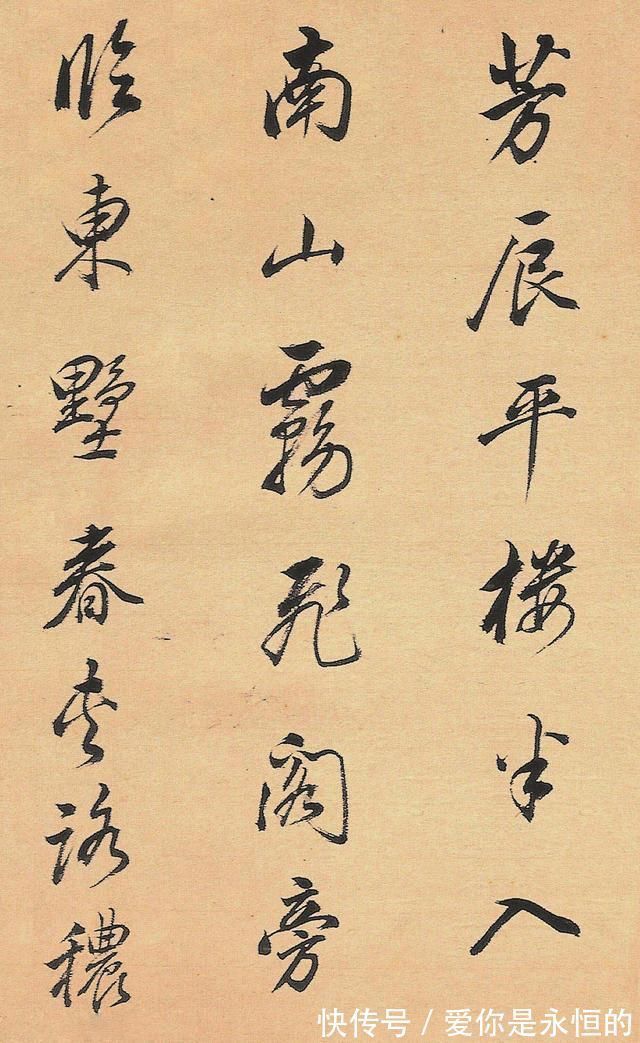 芳辰平樓半入
南山霧飛閣旁
臨東墅春夾路穠
快传号 / 爱你是永恒的